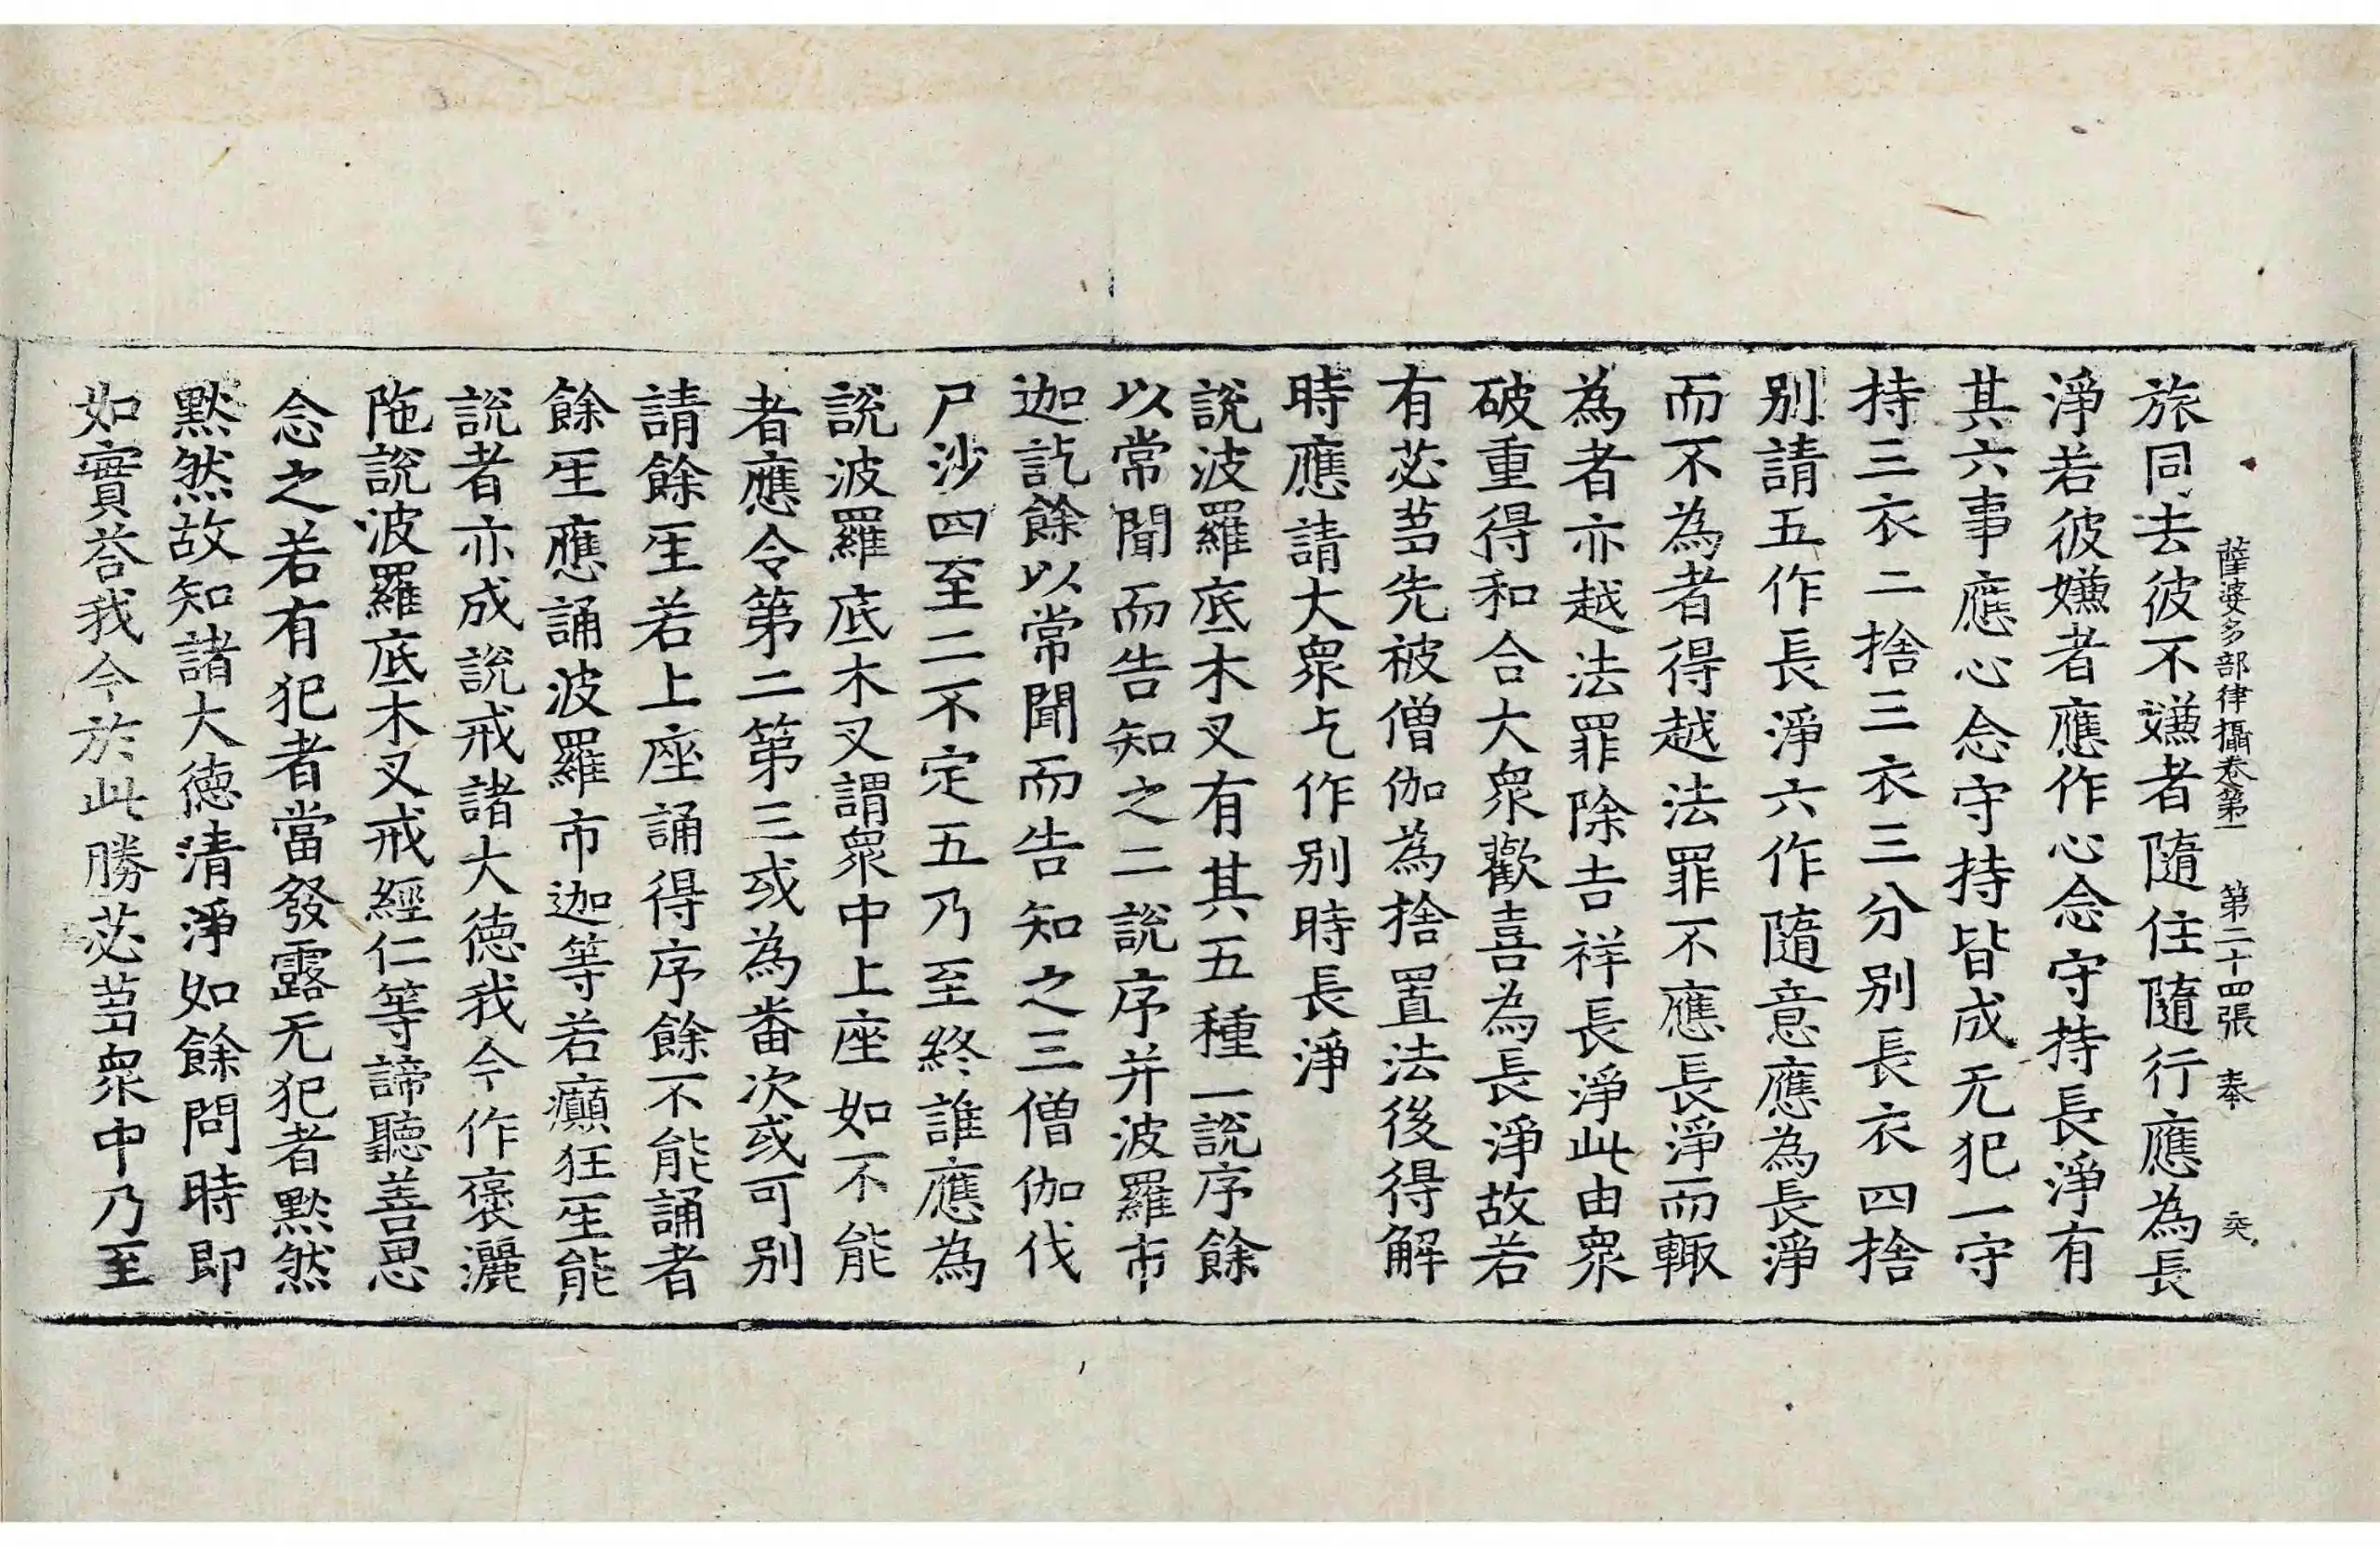 薩婆多部律攝卷第一 第二十四張 奉
旅同去彼不嫌者隨住隨行應為長
淨若彼嫌者應作心念守持長淨有
其六事應心念守持皆成无犯一守
持三衣二捨三衣三分別長衣四捨
別請五作長淨六作隨意應為長淨
而不為者得越法罪不應長淨而輙
為者亦越法罪除吉祥長淨此由衆
破重得和合大衆歡喜為長淨故若
有苾芻先被僧伽為捨置法後得解
時應請大衆乞作別時長淨
說波羅底木叉有其五種一說序餘
以常聞而告知之二說序并波羅市
迦訖餘以常聞而告知之三僧伽伐
尸沙四至二不定五乃至終誰應為
說波羅底木叉謂衆中上座如不能
者應令第二第三或為番次或可別
請餘𤯔若上座誦得序餘不能誦者
餘𤯔應誦波羅市迦等若癲狂𤯔能
說者亦成說戒諸大德我今作褒灑
陁說波羅底木叉戒經仁等諦聽善思
念之若有犯者當發露无犯者黙然
黙然故知諸大德清淨如餘問時即
如實荅我今於此勝苾芻衆中乃至